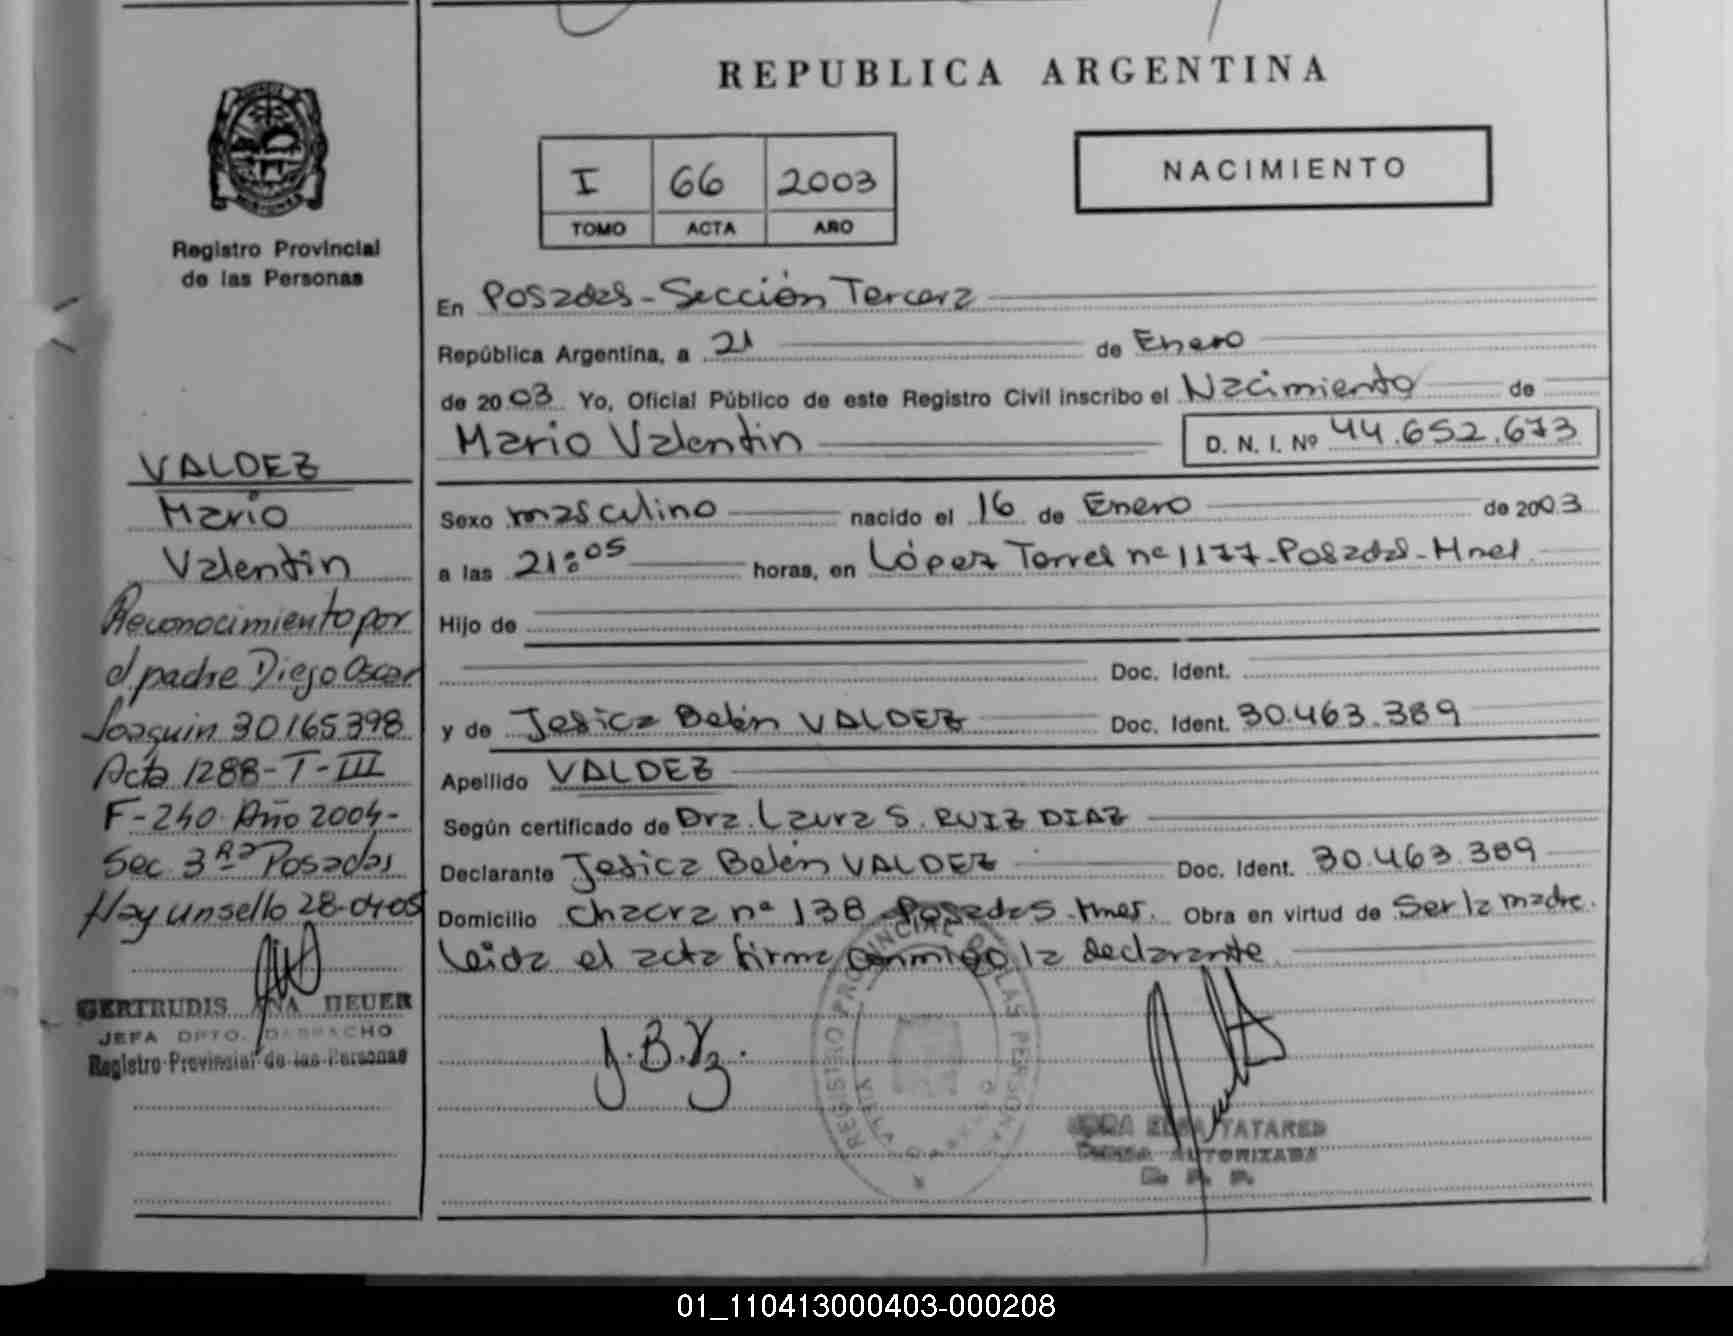 REPUBLICA ARGENTINA
NACIMIENTO
I 66 2003
TOMO ACTA AÑO
Registro Provincial
de las Personas
En Posadas - Sección Tercera
República Argentina, a 21 de Enero
de 2003 Yo, Oficial Público de este Registro Civil inscribo el Nacimiento de
Mario Valentin D. N. I. Nº 44.652.673
Sexo masculino nacido el 16 de Enero de 2003
a las 21:05 horas, en López Torres nº 1177 - Posadas - Mnes.
Hijo de
Doc. Ident.
y de Jesica Belén VALDEZ Doc. Ident. 30.463.389
Apellido VALDEZ
Según certificado de Dra. Laura S. RUIZ DIAZ
Declarante Jesica Belén VALDEZ Doc. Ident. 30.463.389
Domicilio chacra nº 138 Posadas - Mnes. Obra en virtud de Ser la madre.
Leida el acta firma conmigo la declarante
J.B.Vz.
REGISTRO PROVINCIAL DE LAS PERSONAS
TATAREN
FIRMA AUTORIZADA
VALDEZ
Mario
Valentin
Reconocimiento por
el padre Diego Oscar
Joaquin 30165398
Acta 1288-T-III
F-240 Año 2004-
Sec 3ra Posadas
Hay un sello 28-04-05
GERTRUDIS ANA HEUER
JEFA DPTO. DESPACHO
Registro Provincial de las Personas
01_110413000403-000208